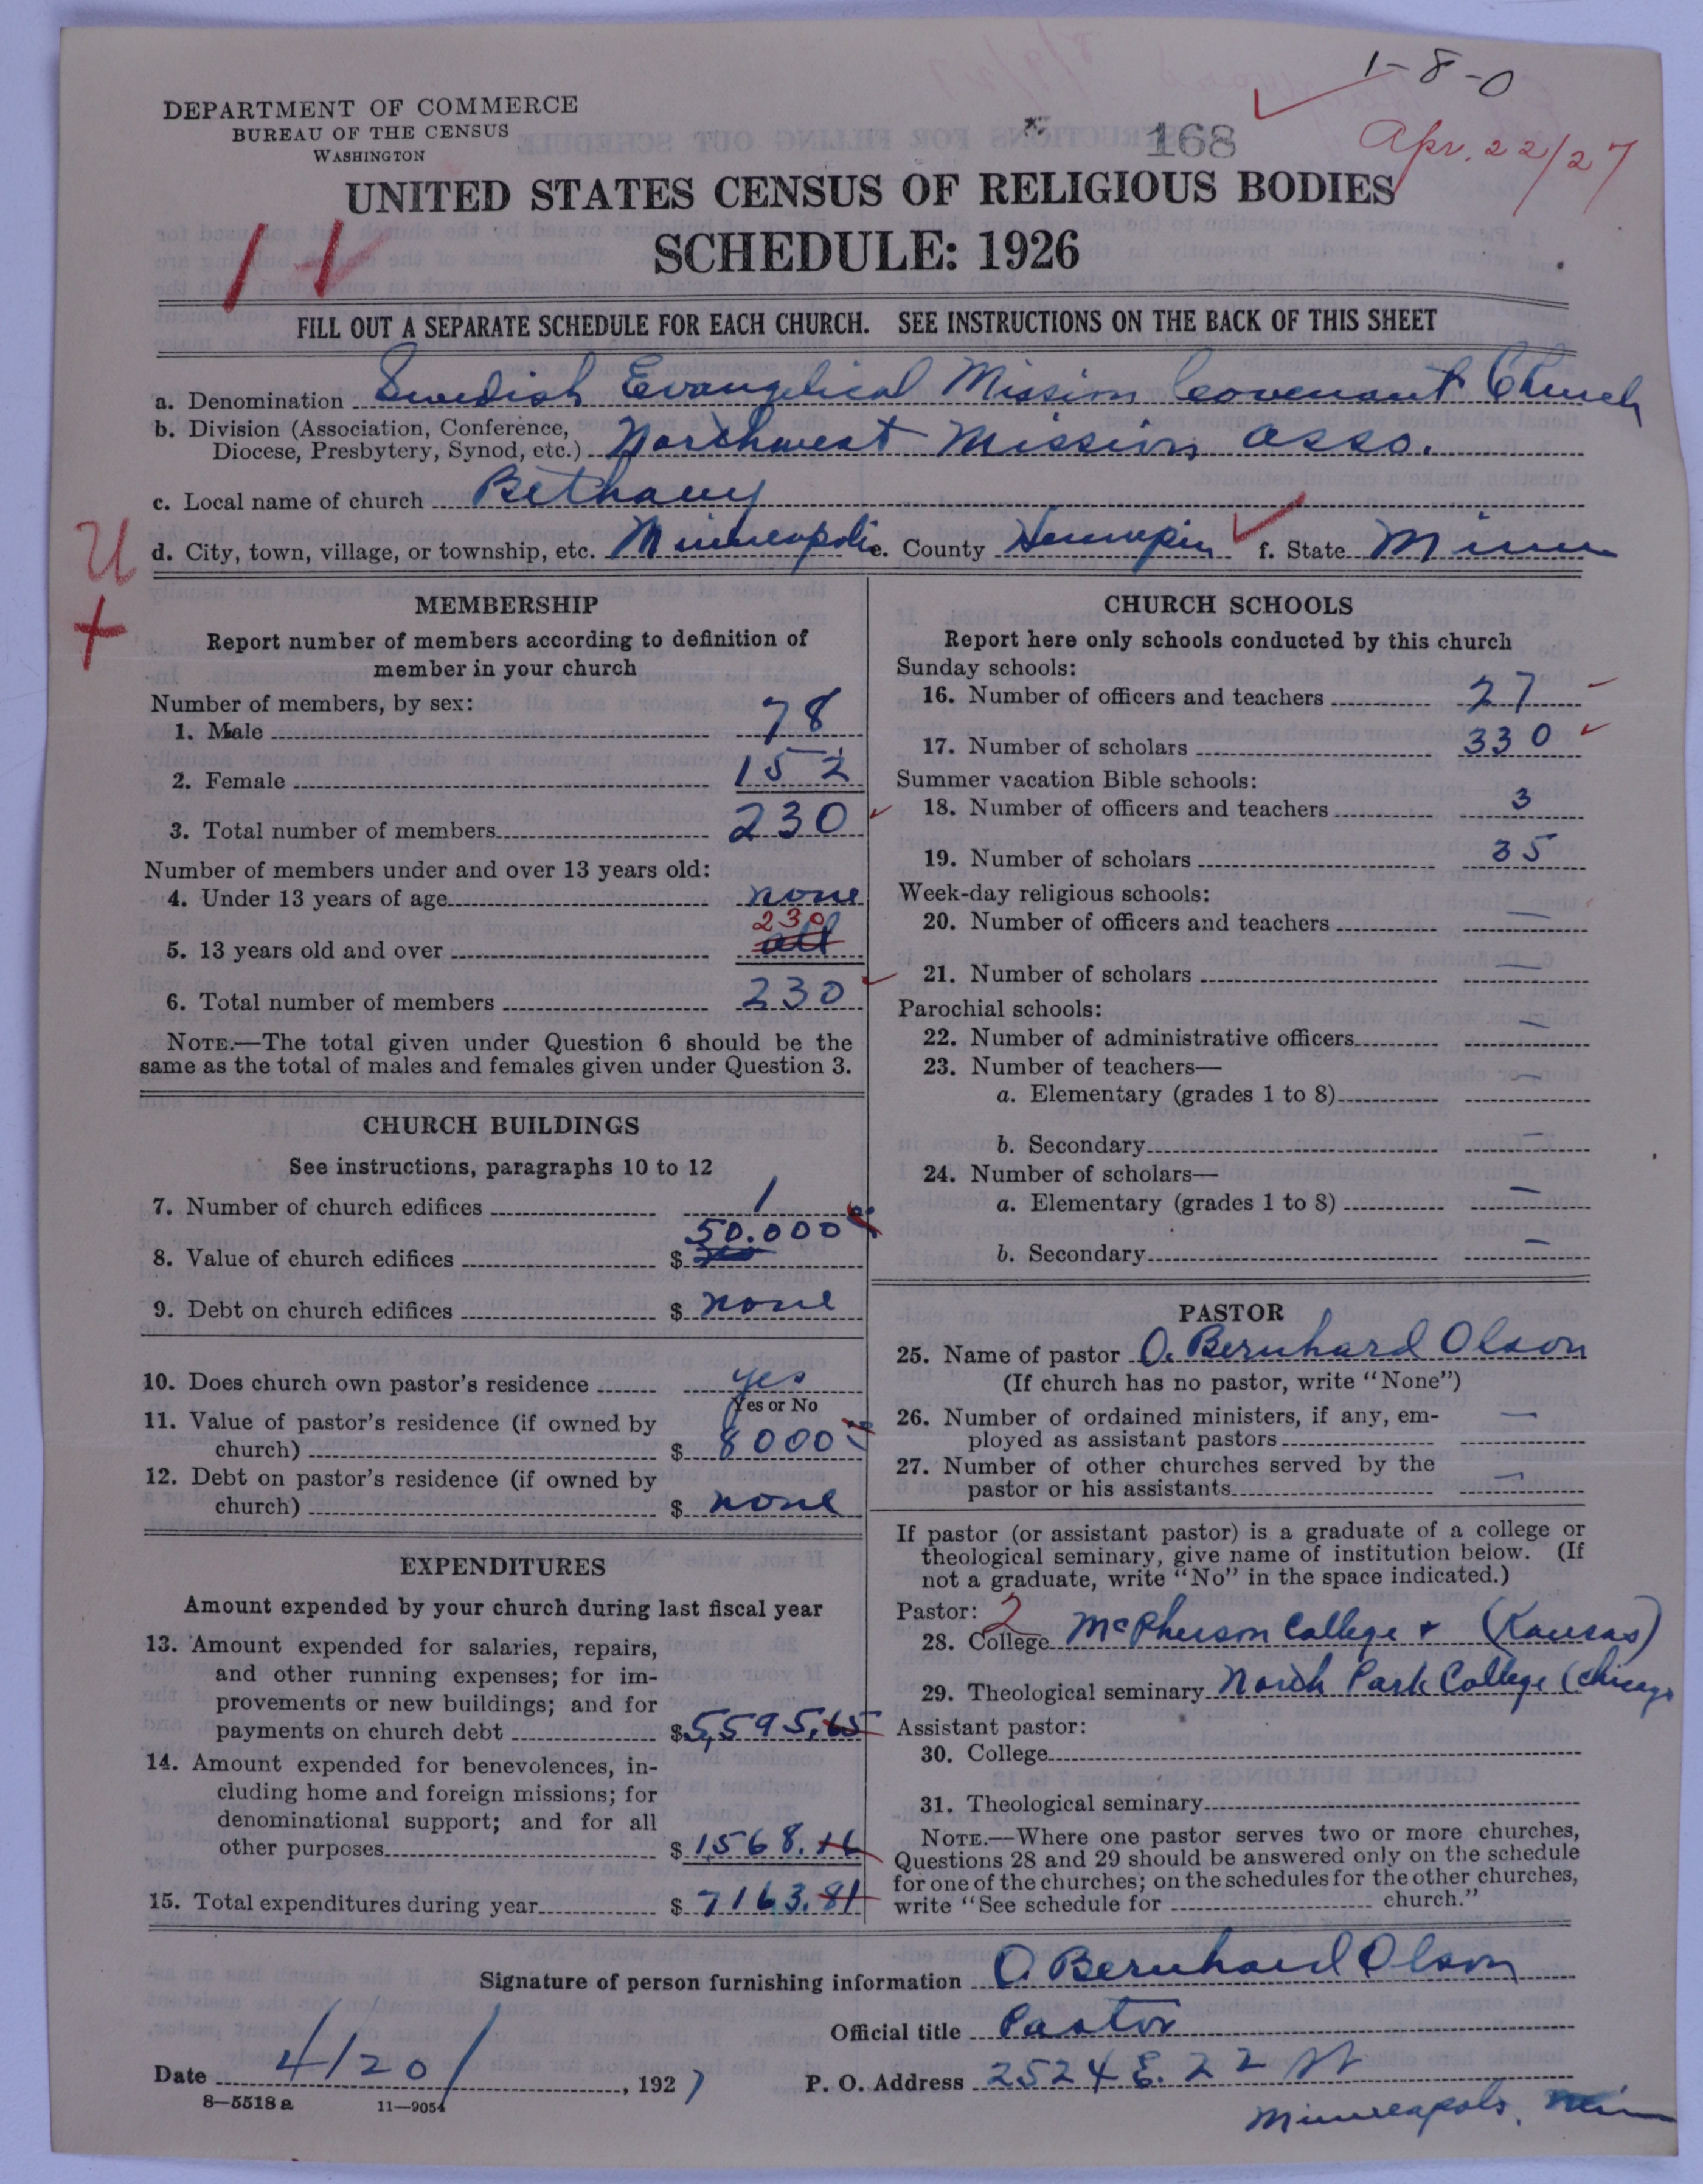 1-8-0
DEPARTMENT OF COMMERCE
BUREAU OF THE CENSUS
WASHINGTON
168
Apr. 22/27
UNITED STATES CENSUS OF RELIGIOUS BODIES
SCHEDULE: 1926
FILL OUT A SEPARATE SCHEDULE FOR EACH CHURCH. SEE INSTRUCTIONS ON THE BACK OF THIS SHEET
a. Denomination Swedish Evangelical Mission Covenant Church
b. Division (Association, Conference,
Diocese, Presbytery, Synod, etc.) Northwest Mission Asso.
c. Local name of church Bethany
d. City, town, village, or township, etc. Minneapolis e. County Hennepin f. State Minn
MEMBERSHIP
Report number of members according to definition of
member in your church
Number of members, by sex:
1. Male 78
2. Female 152
3. Total number of members 230
Number of members under and over 13 years old:
4. Under 13 years of age none
230
5. 13 years old and over all
6. Total number of members 230
NOTE.—The total given under Question 6 should be the
same as the total of males and females given under Question 3.
CHURCH BUILDINGS
See instructions, paragraphs 10 to 12
7. Number of church edifices 1
8. Value of church edifices $ 50.000
9. Debt on church edifices $ none
10. Does church own pastor's residence yes
Yes or No
11. Value of pastor's residence (if owned by
church) $ 8000
12. Debt on pastor's residence (if owned by
church) $ none
EXPENDITURES
Amount expended by your church during last fiscal year
13. Amount expended for salaries, repairs,
and other running expenses; for im-
provements or new buildings; and for
payments on church debt $ 5,595,65
14. Amount expended for benevolences, in-
cluding home and foreign missions; for
denominational support; and for all
other purposes $ 1,568.16
15. Total expenditures during year $ 7163.81
CHURCH SCHOOLS
Report here only schools conducted by this church
Sunday schools:
16. Number of officers and teachers 27
17. Number of scholars 330
Summer vacation Bible schools:
18. Number of officers and teachers 3
19. Number of scholars 35
Week-day religious schools:
20. Number of officers and teachers —
21. Number of scholars —
Parochial schools:
22. Number of administrative officers —
23. Number of teachers—
a. Elementary (grades 1 to 8) —
b. Secondary —
24. Number of scholars—
a. Elementary (grades 1 to 8) —
b. Secondary —
PASTOR
25. Name of pastor O. Bernhard Olson
(If church has no pastor, write "None")
26. Number of ordained ministers, if any, em-
ployed as assistant pastors —
27. Number of other churches served by the
pastor or his assistants —
If pastor (or assistant pastor) is a graduate of a college or
theological seminary, give name of institution below. (If
not a graduate, write "No" in the space indicated.)
Pastor: 2
28. College McPherson College + (Kansas)
29. Theological seminary North Park College (Chicago
Assistant pastor:
30. College
31. Theological seminary
NOTE.—Where one pastor serves two or more churches,
Questions 28 and 29 should be answered only on the schedule
for one of the churches; on the schedules for the other churches,
write "See schedule for church."
Signature of person furnishing information O. Bernhard Olson
Official title Pastor
Date 4/20/, 1927
P. O. Address 2524 E. 22 St
Minneapolis, Minn
8—5518 a 11—9054